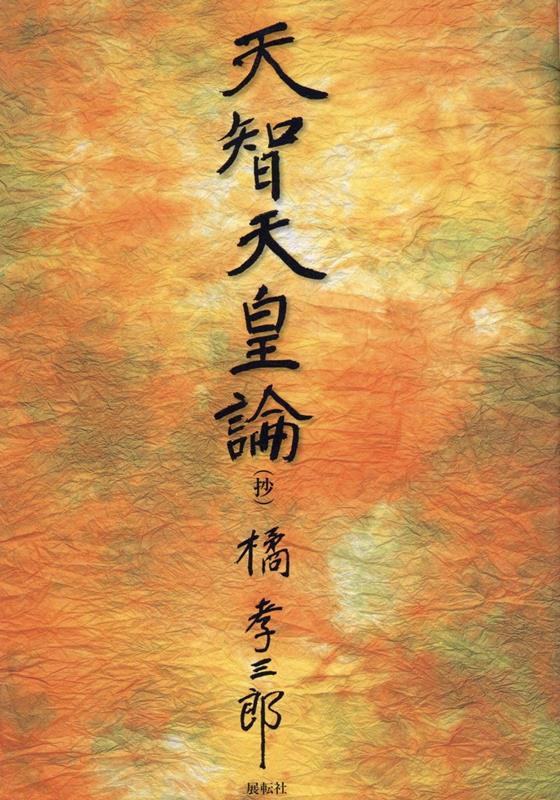 天智天皇論
（抄）
橘 孝三郎
展転社